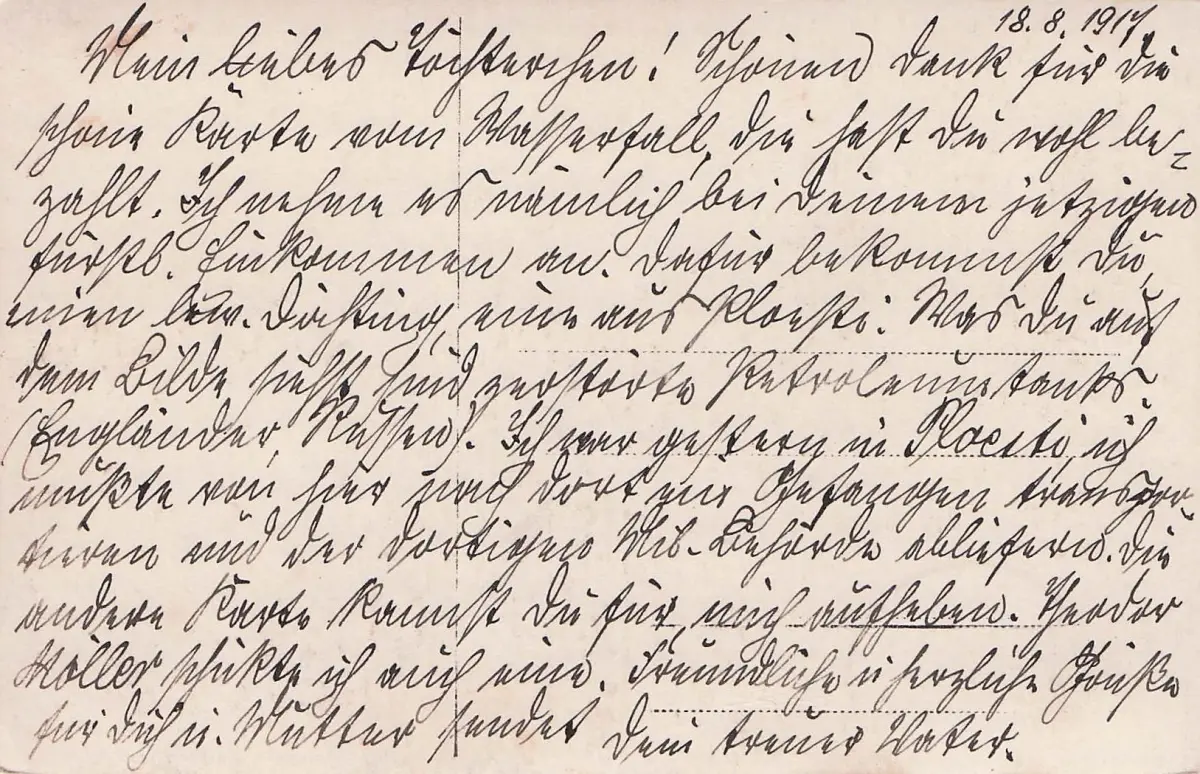 18.8.1917.
Mein liebes Töchterchen! Schönen Dank für die
schöne Karte vom Wasserfall, die hast Du wohl be-
zahlt. Ich nehme es nämlich bei Deinem jetzigen
fürstl. Einkommen an. Dafür bekommst Du,
einen eine aus Ploesti. Was Du auf
dem Bilde siehst sind zerstörte Petroleumtanks.
(Engländer, Russen). Ich war gestern in Ploesti, ich
mußte von hier nach dort ein Gefangen transpor-
tieren und der dortigen Mil.-Behörde abliefern. Die
andere Karte kannst Du für mich aufheben. Theodor
Möller schickte ich auch eine. Freundliche u herzliche Grüße
für Dich u. Mutter sendet Dein treuer Vater.